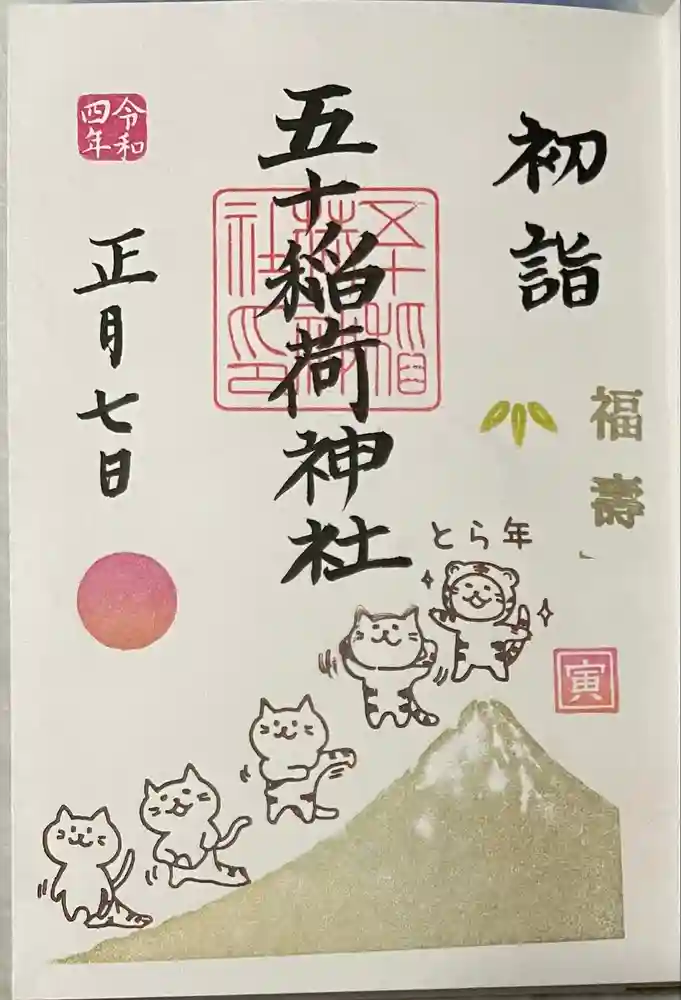 初詣
福壽
五十稲荷神社
五十稲荷神社印
令和四年
正月七日
とら年
寅